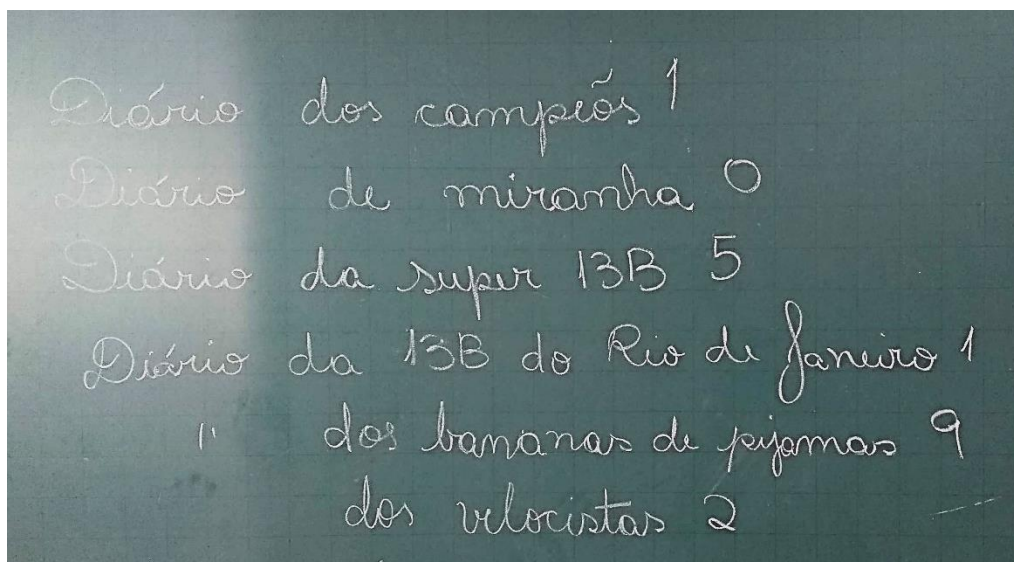 Diário dos campeõs 1
Diário de miranha 0
Diário da super 13B 5
Diário da 13B do Rio de Janeiro 1
" dos bananas de pijamas 9
dos velocistas 2